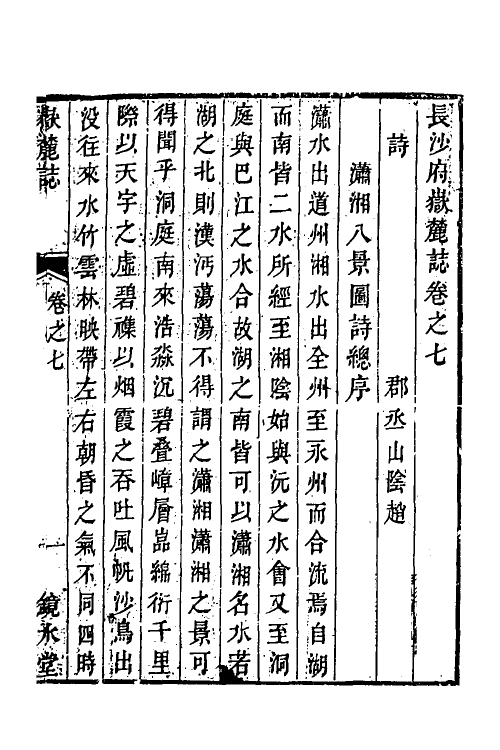 長沙府嶽麓誌卷之七
詩 郡丞山陰趙
瀟湘八景圖詩總序
瀟水出道州湘水出全州至永州而合流焉自湖
而南皆二水所經至湘陰始與沅之水會又至洞
庭與巴江之水合故湖之南皆可以瀟湘名水若
湖之北則漢沔蕩蕩不得謂之瀟湘瀟湘之景可
得聞乎洞庭南來浩淼沉碧疊嶂層嵓綿衍千里
際以天宇之虛碧襍以烟霞之吞吐風帆沙鳥出
沒往來水竹雲林映帶左右朝昏之氣不同四時
嶽麓誌 卷之七 一 鏡水堂